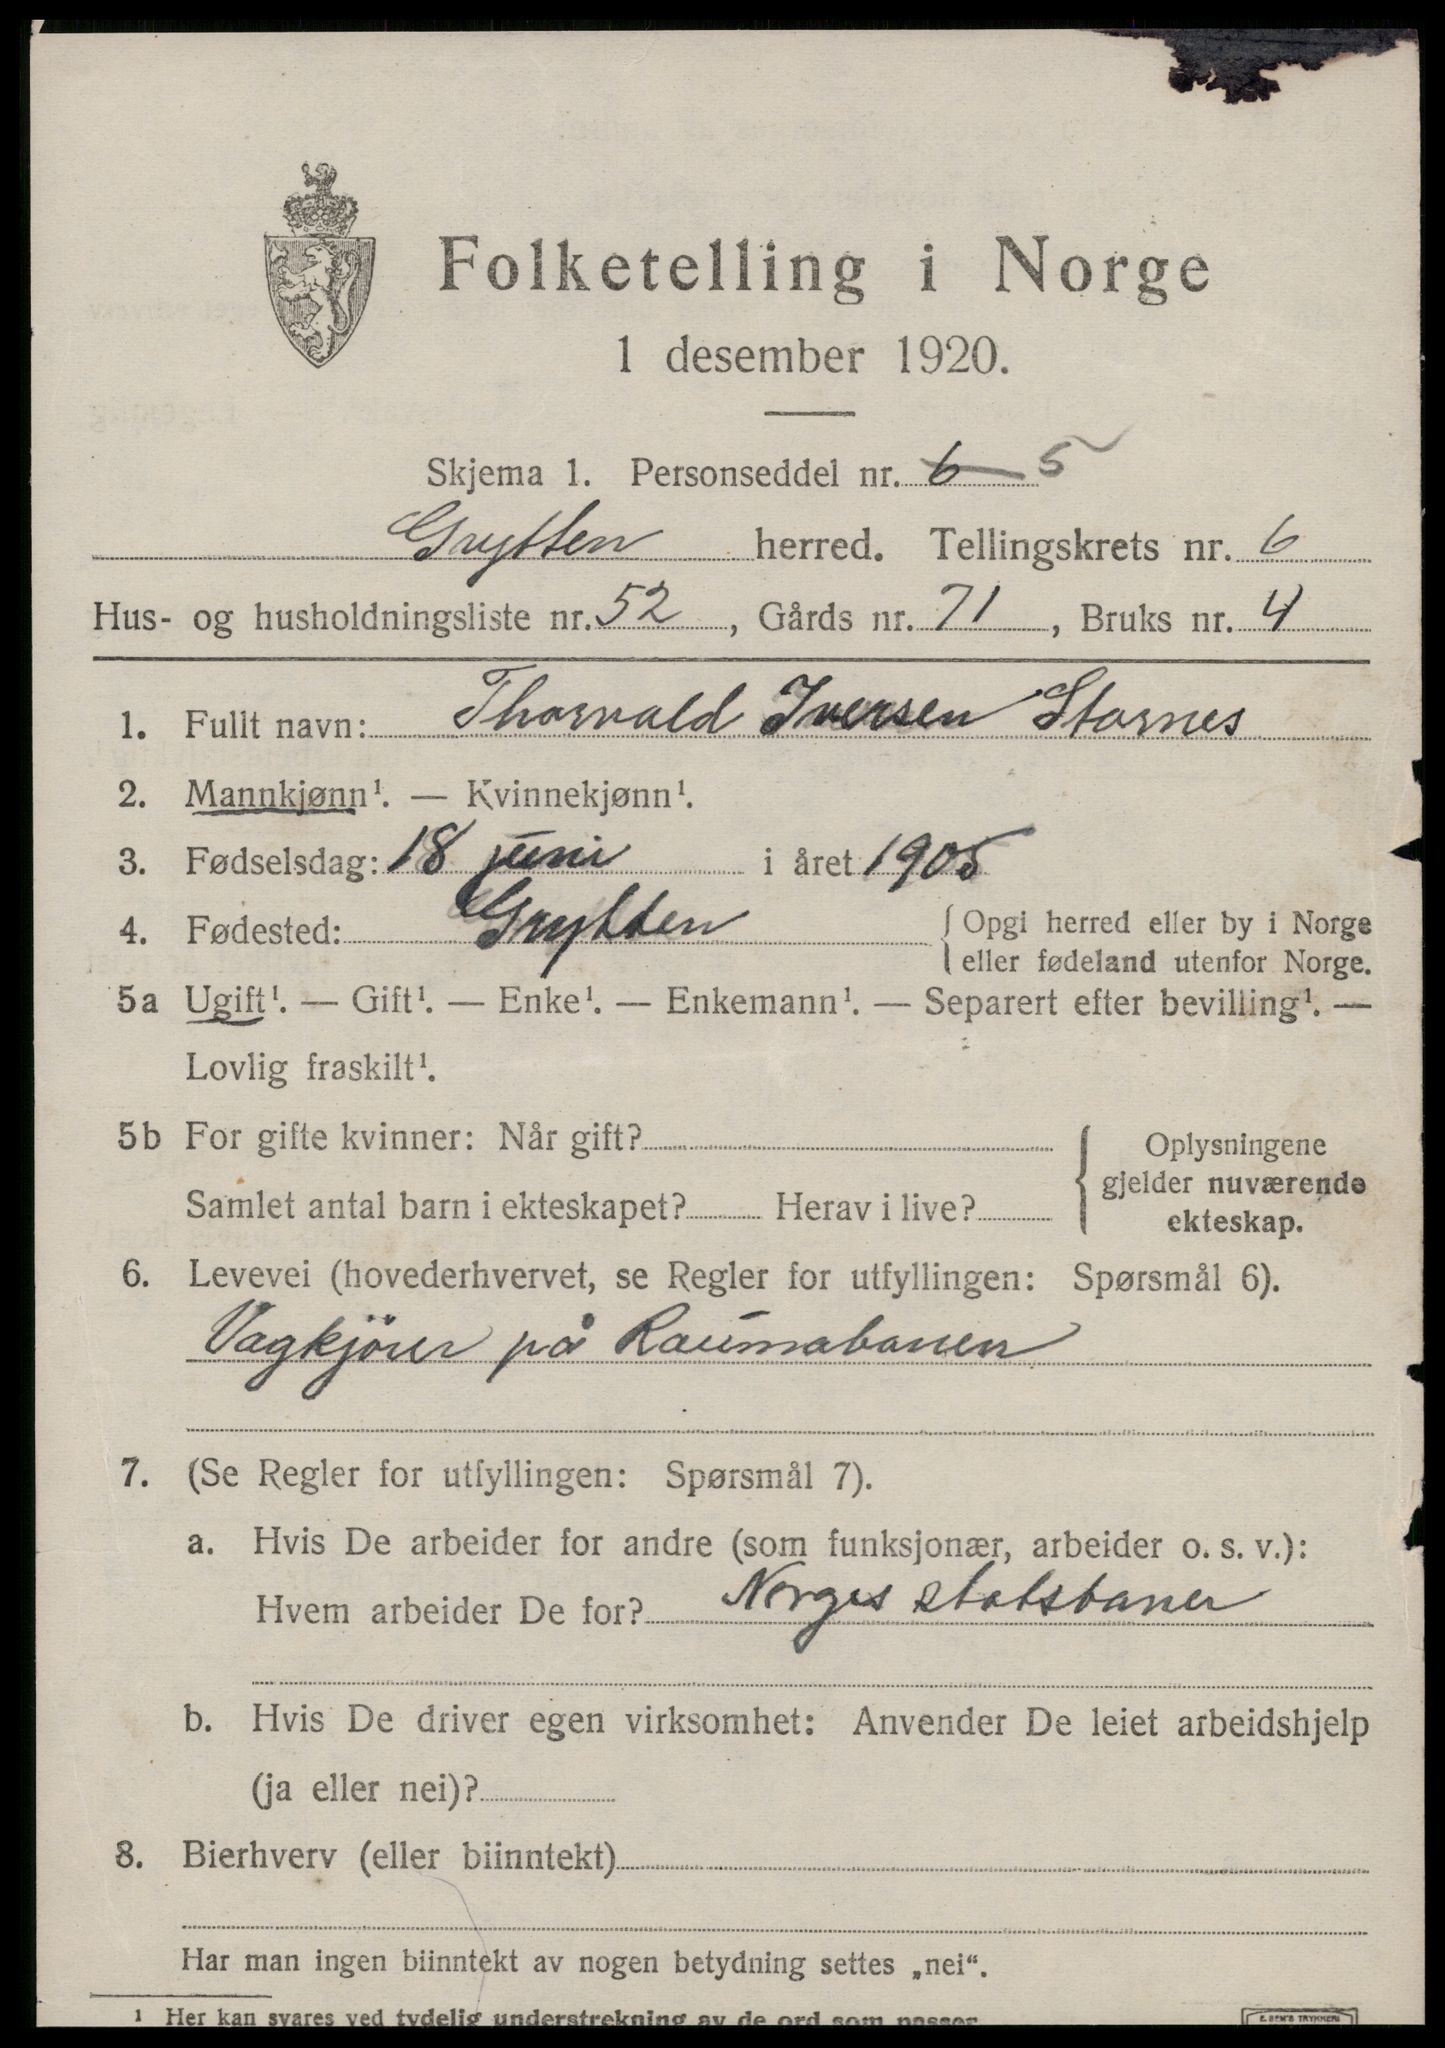 Folketelling i Norge
1 desember 1920.
Skjema 1. Personseddel nr. 6 5
Grytten herred. Tellingskrets nr. 6
Hus- og husholdningsliste nr. 52, Gårds nr. 71, Bruks nr. 4
1. Fullt navn: Thorvald Iversen Stornes
2. Mannkjønn¹. — Kvinnekjønn¹.
3. Fødselsdag: 18 juni i året 1905
4. Fødested: Grytten { Opgi herred eller by i Norge
eller fødeland utenfor Norge.
5a Ugift¹. — Gift¹. — Enke¹. — Enkemann¹. — Separert efter bevilling¹. —
Lovlig fraskilt¹.
5b For gifte kvinner: Når gift?
Samlet antal barn i ekteskapet? Herav i live?
{ Oplysningene
gjelder nuværende
ekteskap.
6. Levevei (hovederhvervet, se Regler for utfyllingen: Spørsmål 6).
Vagkjörer på Raumabanen
7. (Se Regler for utfyllingen: Spørsmål 7).
a. Hvis De arbeider for andre (som funksjonær, arbeider o. s. v.):
Hvem arbeider De for? Norges statsbaner
b. Hvis De driver egen virksomhet: Anvender De leiet arbeidshjelp
(ja eller nei)?
8. Bierhverv (eller biinntekt)
Har man ingen biinntekt av nogen betydning settes „nei“.
1 Her kan svares ved tydelig understrekning av de ord som passer.
E. SEM'S TRYKKERI